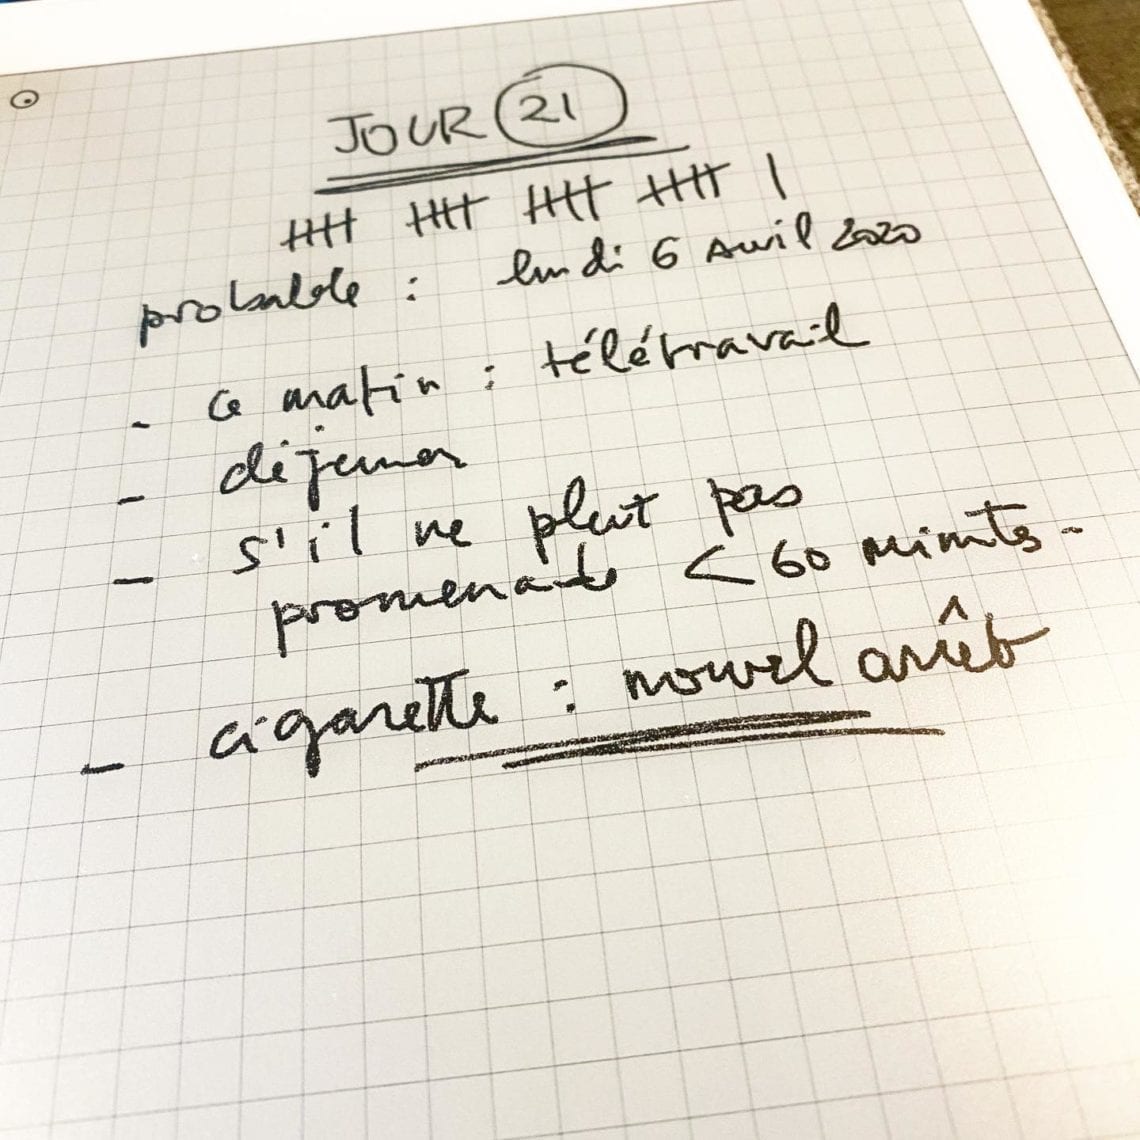 JOUR 21
probable : lundi 6 avril 2020
- ce matin : télétravail
- déjeuner
- s'il ne pleut pas
promenade < 60 minutes -
- cigarette : nouvel arrêt